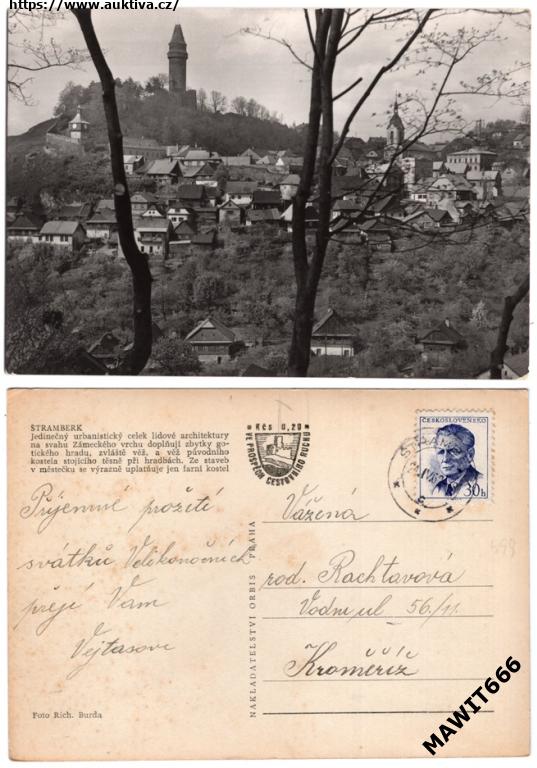 https://www.auktiva.cz/
ŠTRAMBERK
Jedinečný urbanistický celek lidové architektury
na svahu Zámeckého vrchu doplňují zbytky go-
tického hradu, zvláště věž, a věž původního
kostela stojícího těsně při hradbách. Ze staveb
v městečku se výrazně uplatňuje jen farní kostel
Kčs 0,20
VE PROSPĚCH CESTOVNÍHO RUCHU
ČESKOSLOVENSKO
30 h
Příjemné prožití
svátků Velikonočních
přejí Vám
Vejtasovi
NAKLADATELSTVÍ ORBIS PRAHA
Vážená
rod. Rachtavová
Vodní ul 56/11.
Kroměříž
Foto Rich. Burda
MAWIT666